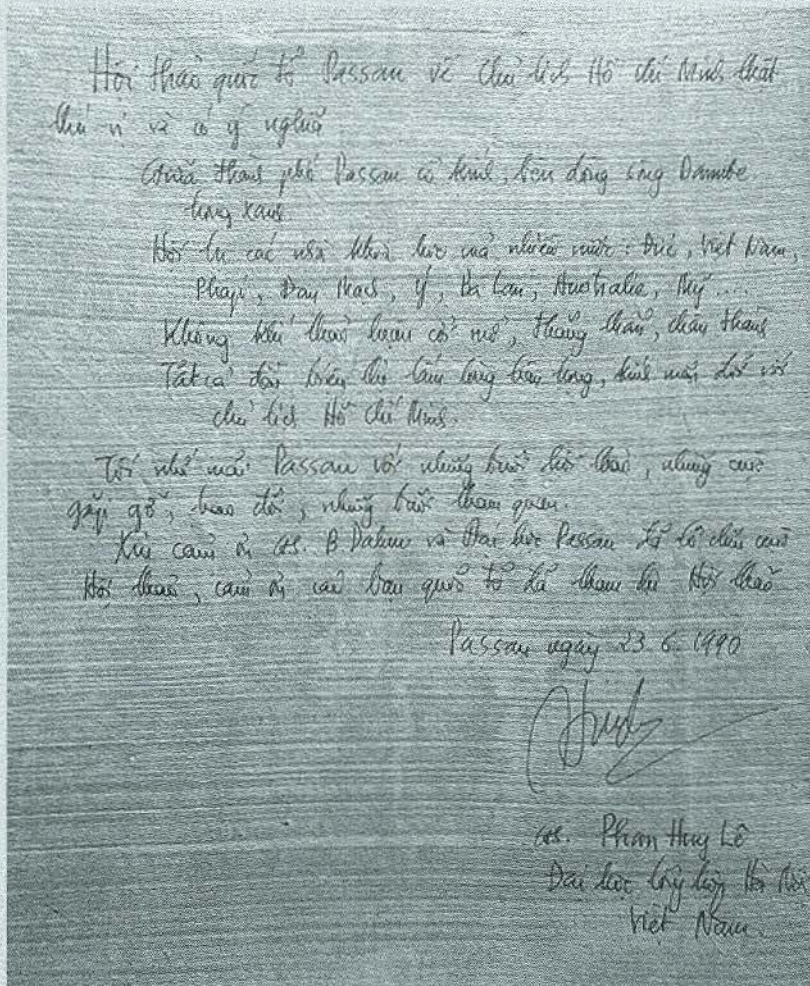 Hội thảo quốc tế Passau về Chủ tịch Hồ Chí Minh thật
thú vị và có ý nghĩa
Giữa thành phố Passau cổ kính, bên dòng sông Danube
trong xanh
Hội tụ các nhà khoa học của nhiều nước: Đức, Việt Nam,
Pháp, Đan Mạch, Ý, Ba Lan, Australie, Mỹ....
Không khí thảo luận cởi mở, thẳng thắn, chân thành
Tất cả đều biểu thị tấm lòng trân trọng, kính mến đối với
chủ tịch Hồ Chí Minh.
Tôi nhớ mãi Passau với những buổi hội thảo, những cuộc
gặp gỡ, trao đổi, những buổi tham quan.
Xin cảm ơn GS. B Dahm và Đại học Passau đã tổ chức cuộc
Hội thảo, cảm ơn các bạn quốc tế đã tham dự Hội thảo
Passau ngày 23.6.1990
GS. Phan Huy Lê
Đại học tổng hợp Hà Nội
Việt Nam.